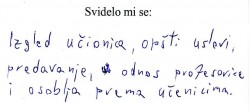 Svidelo mi se:
Izgled učionica, opšti uslovi,
predavanje, odnos profesorice
i osoblja prema učenicima.